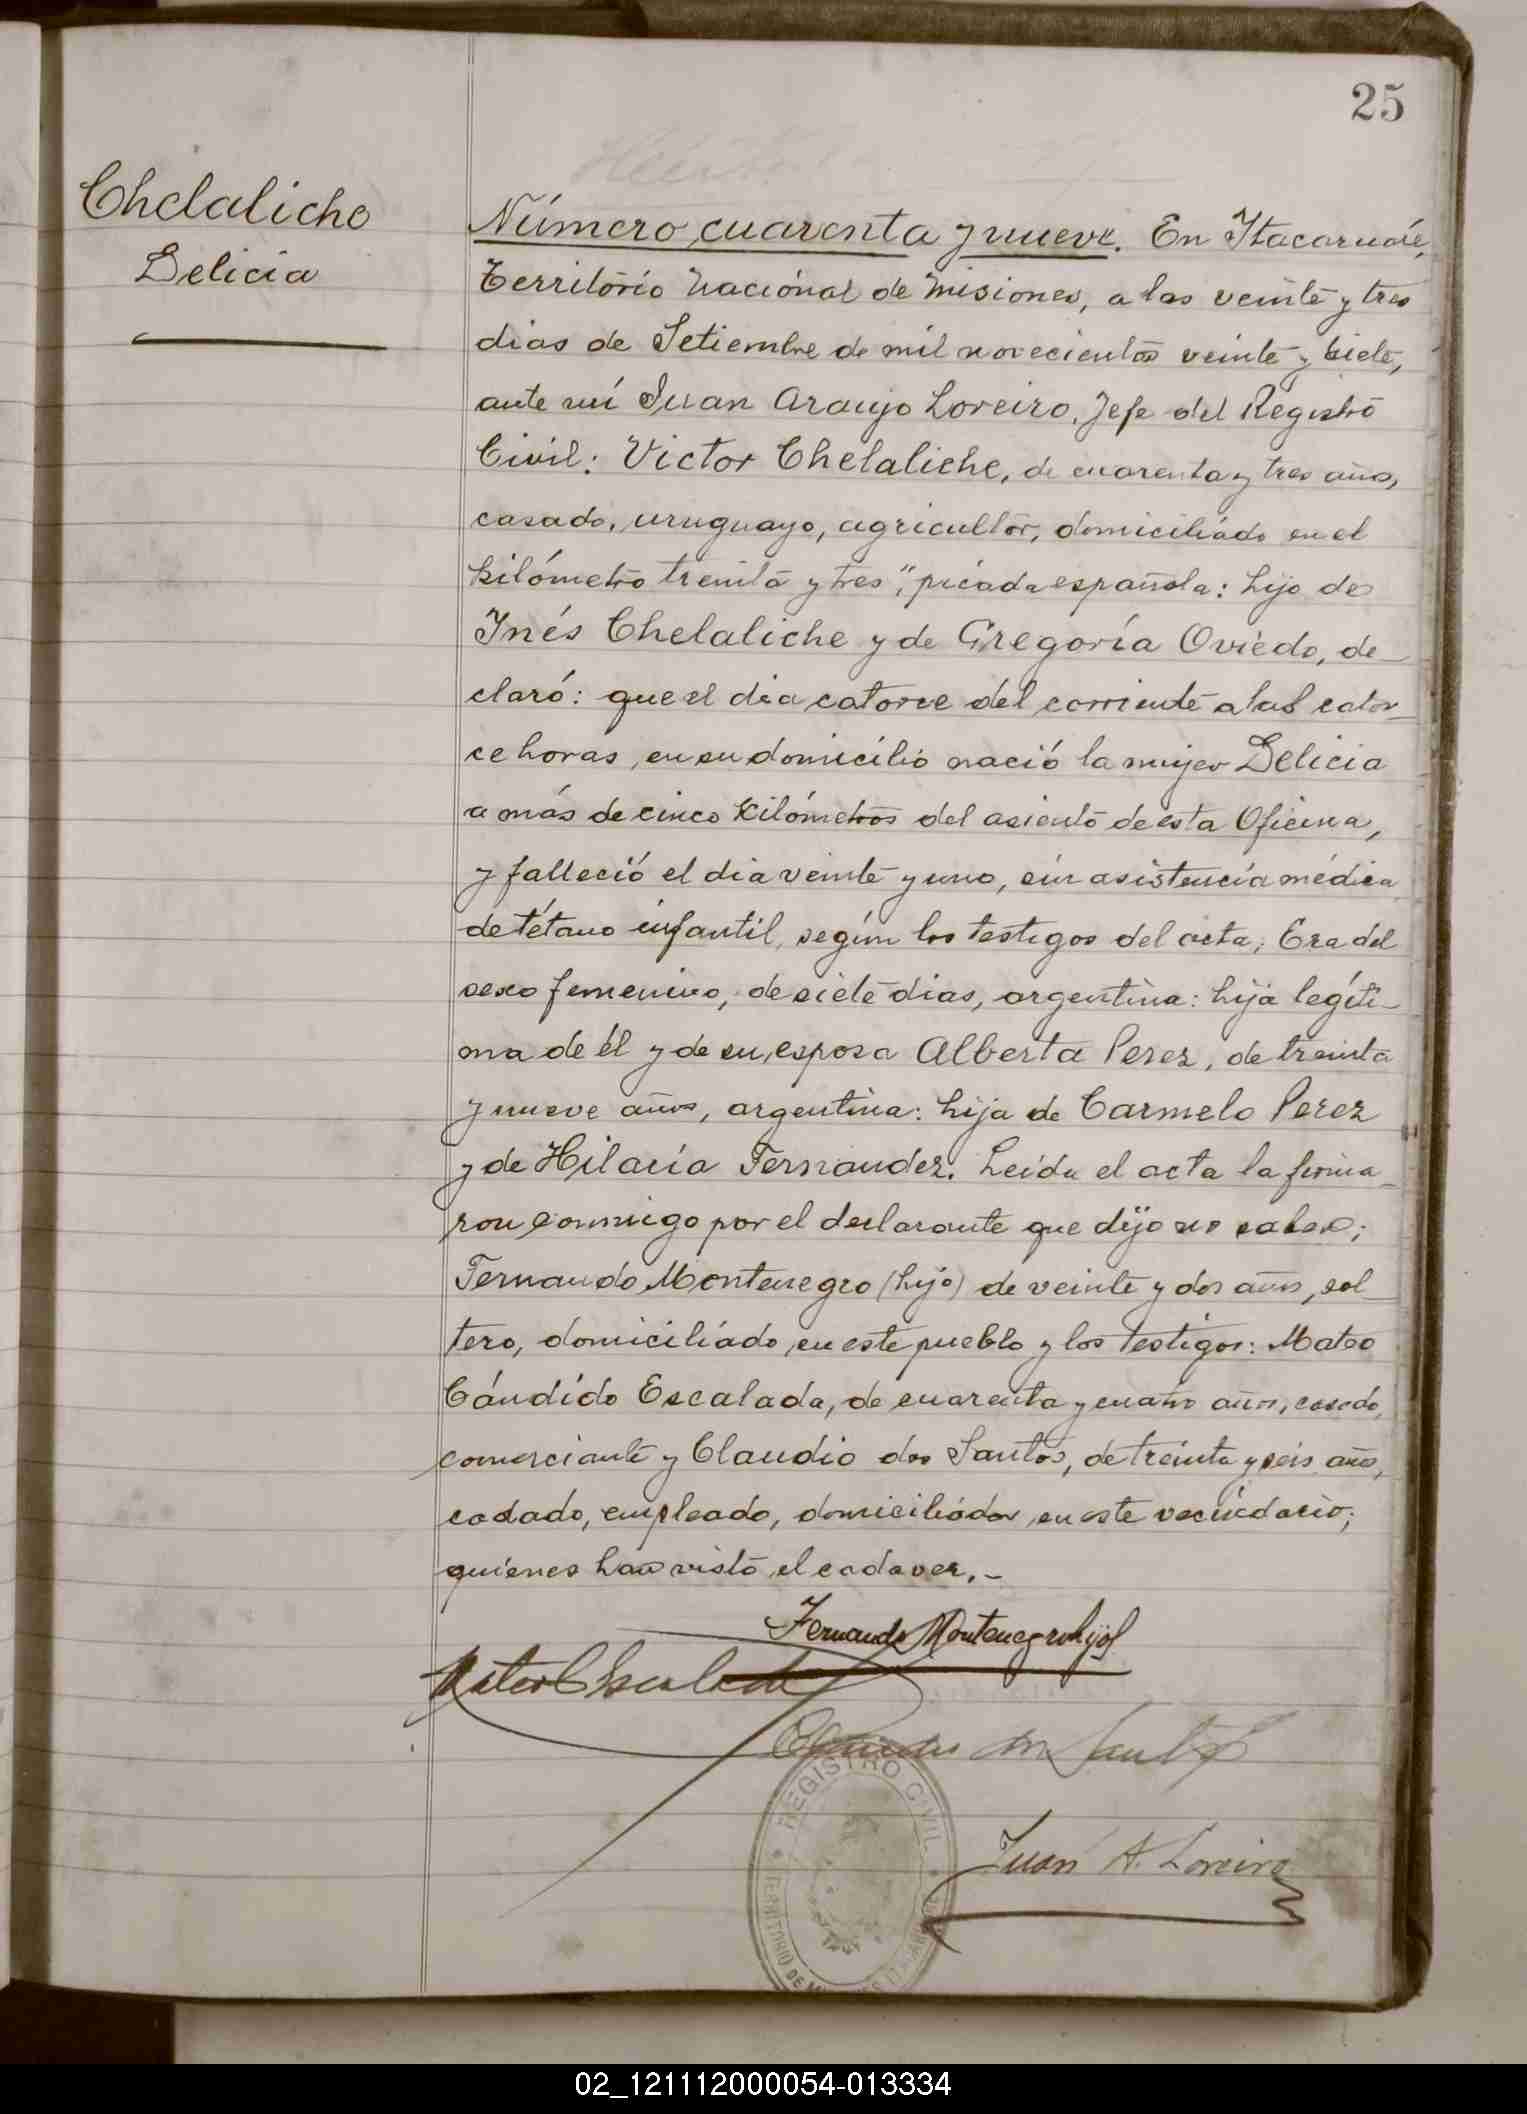 25
Chelaliche
Delicia
Número cuarenta y nueve. En Itacaruaré,
Territorio Nacional de Misiones, a los veinte y tres
dias de Setiembre de mil novecientos veinte y siete,
ante mí Juan Araujo Loreiro, Jefe del Registro
Civil: Victor Chelaliche, de cuarenta y tres años,
casado, uruguayo, agricultor, domiciliado en el
kilómetro treinta y tres", picada española: hijo de
Inés Chelaliche y de Gregoría Oviedo, de-
claró: que el dia catorce del corriente a las cator-
ce horas, en su domicilio nació la mujer Delicia
a más de cinco kilómetros del asiento de esta Oficina,
y falleció el dia veinte y uno, sin asistencia médica
de tétano infantil, según los testigos del acta; Era del
sexo femenino, de siete dias, argentina: hija legíti-
ma de él y de su esposa Alberta Perez, de treinta
y nueve años, argentina: hija de Carmelo Perez
y de Hilaria Fernandez. Leída el acta la firma-
ron conmigo por el declarante que dijo no saber;
Fernando Montenegro (hijo) de veinte y dos años, sol-
tero, domiciliado en este pueblo y los testigos: Mateo
Cándido Escalada, de cuarenta y cuatro años, casado,
comerciante y Claudio dos Santos, de treinta y seis años,
casado, empleado, domiciliados en este vecindario;
quienes han visto el cadaver.-
Fernando Montenegro hijo
Mateo C Escalada
Claudio dos Santos
REGISTRO CIVIL
TERRITORIO DE MISIONES
Juan A. Loreiro
02_121112000054-013334